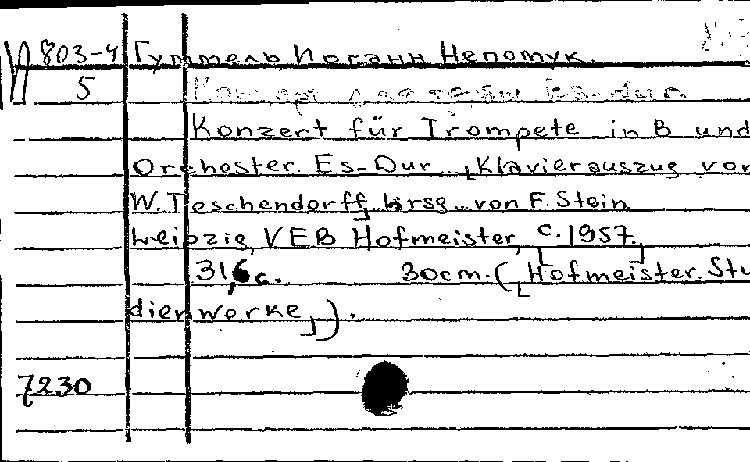 803-4 Гуммель Иоганн Непомук.
5
Konzert für Trompete in B und
Orchester. Es-Dur. Klavierauszug von
W. Teschendorff, hrsg. von F. Stein
Leipzig, VEB Hofmeister, [c. 1957.]
31, 6 c. 30 cm. ([Hofmeister. Stu
dienwerke]).
7230